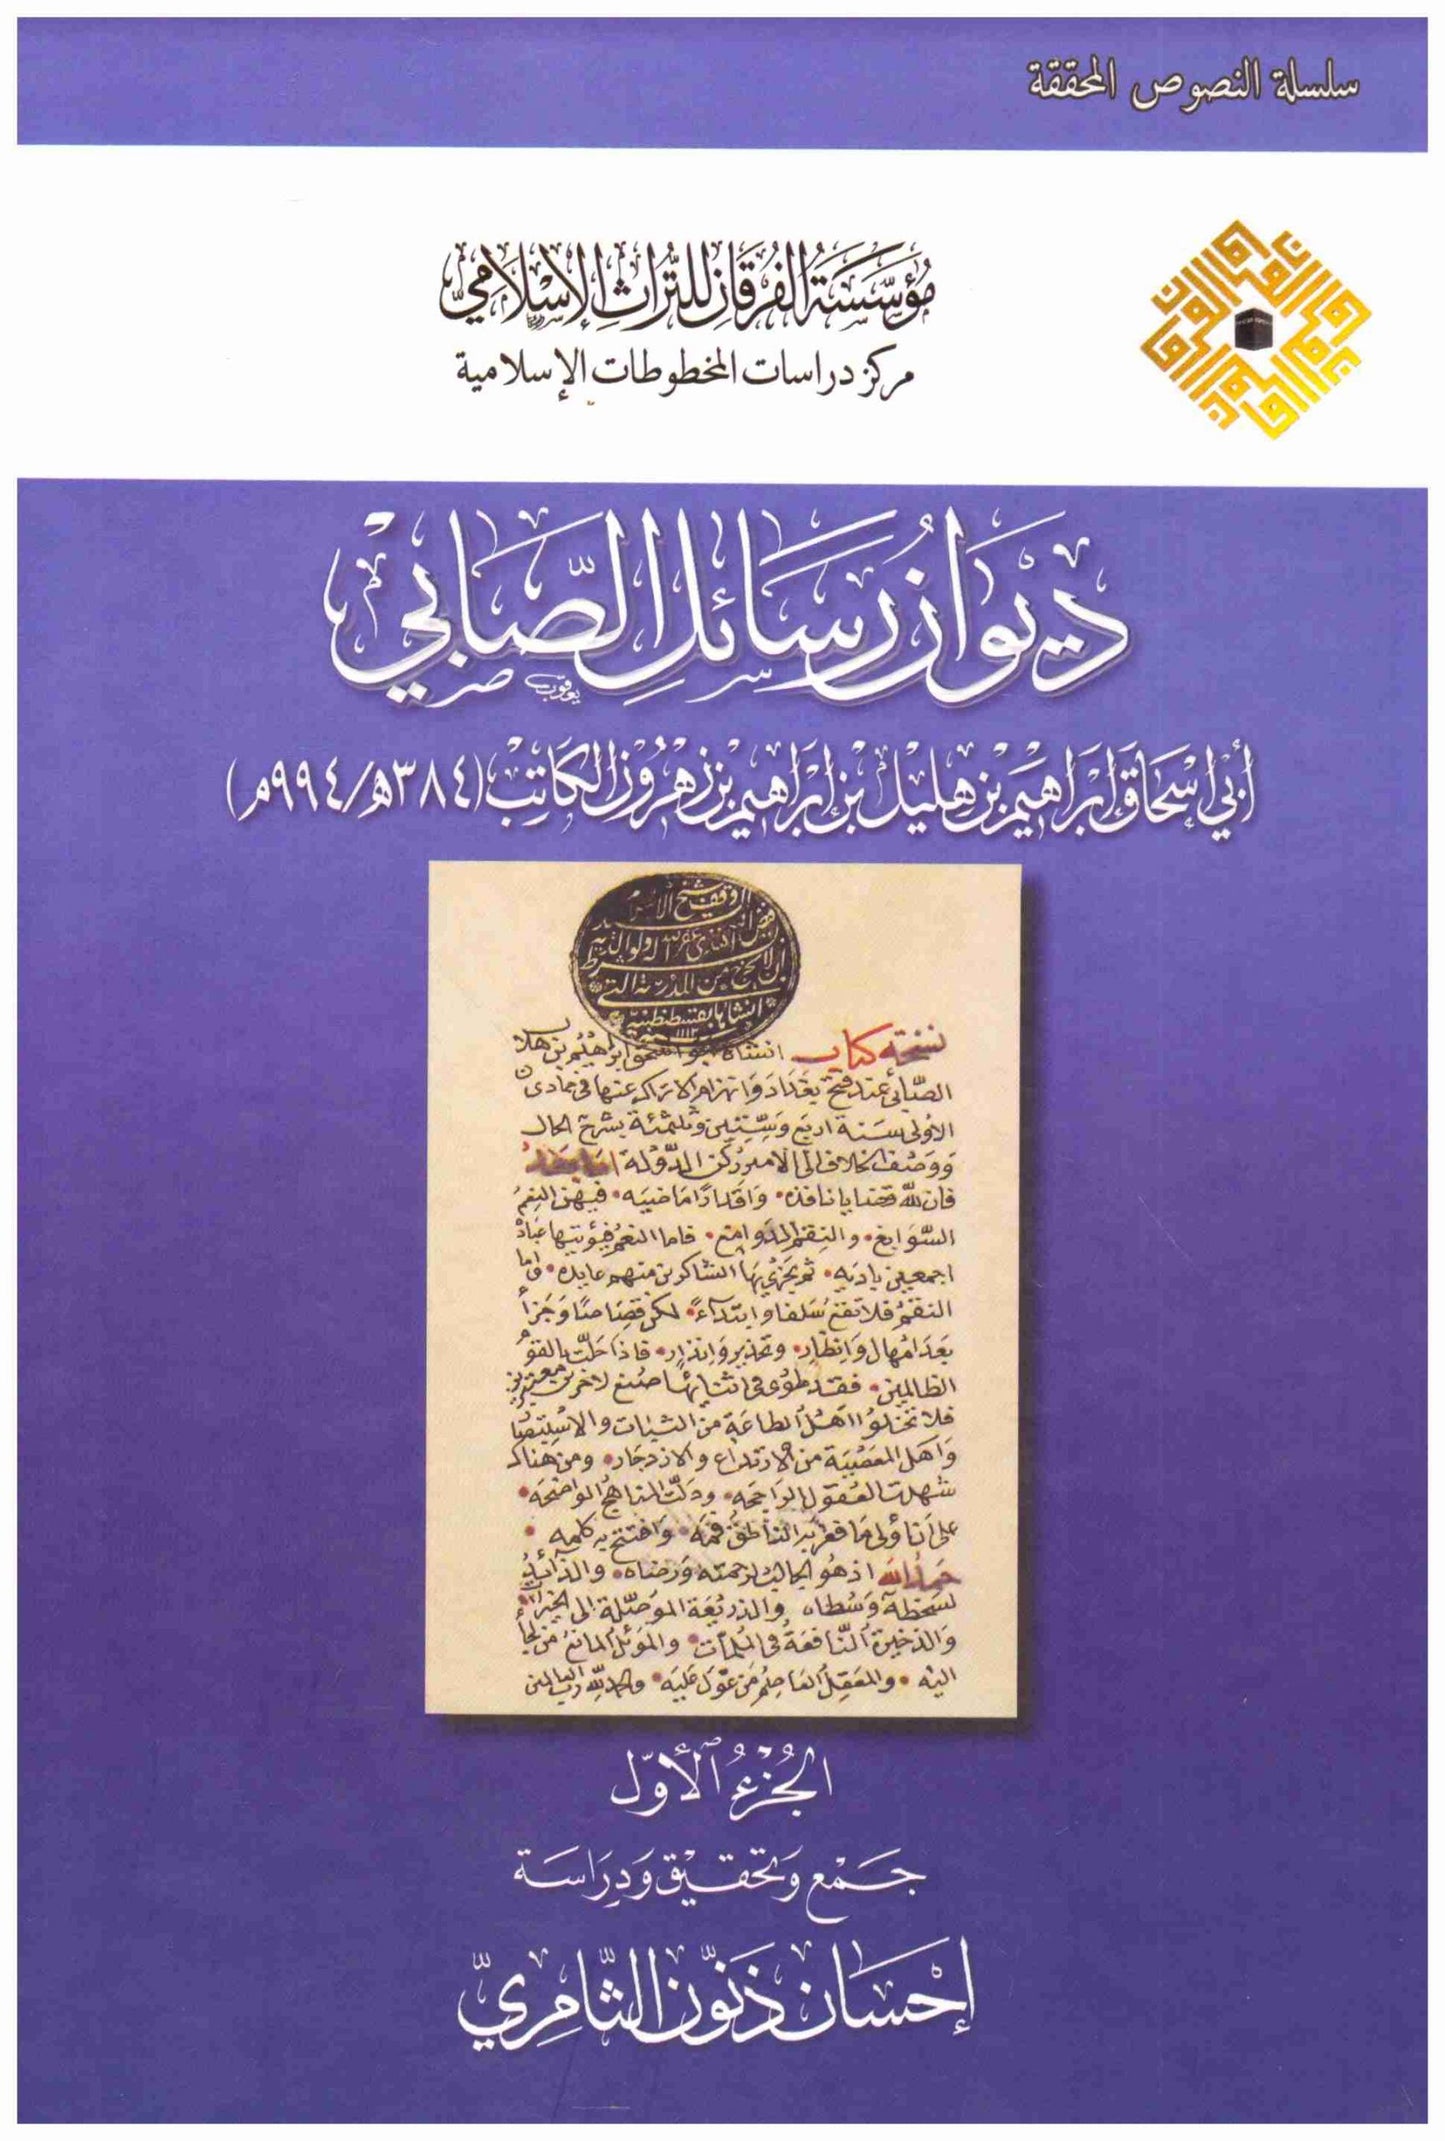 سلسلة النصوص المحققة
مُؤَسَّسَةُ الفُرقَانِ لِلتُّراثِ الإِسْلَامِيِّ
مركز دراسات المخطوطات الإسلامية
ديوَانُ رَسَائلِ الصَّابي
يعقوب
أبي إسْحَاقَ إبرَاهِيْمَ بْن هِلَيْل بْن إبرَاهِيم بْن زَهْرُوْن الكَاتِبْ (٣٨٤ﻫ/٩٩٤م)
نسخة كتاب انشاه ابو اسحق ابراهيم بن هلال
الصّابئ عند فتح بغداد وانهزام الاتراك عنها في جمادى
الاولى سنة اربع وسِتّين وثلثمئة يشرح الحال
ووصف الخلاف الى الامير ركن الدَّوْلة اما بعد
فان لله قضايا نافذه • واقدارًا ماضيه • فيهن النعمُ
السَّوَابغ • والنِقم الدوامغ • فاما النعم فيؤتيها عباده
اجمعين باديه • ثم يجزي بها الشاكرين منهم عايده • واما
النقمُ فلا تقع سلفا وابتدآءً • لكن قصاصًا وجزآءً
بعد امهال وانظار • وتحذير وانذار • فاذا حلّت بالقوم
الظالمين • فقد طوى في اثنائها صنع لاخرين معتبرين
فلا تخلو اهل الطاعة من الثبات والاستبصار
واهل المعصية من الارتداع والازدجار • ومن هناك
شهدت العقول الراجحه • ودلّت المناهج الواضحه •
على ان اولى ما فغر به الناطق فمه • وافتتح به كلمه •
حمد الله اذ هو الجالب لرحمته ورضاه • والذائد
لسخطه وسطاه والذريعة الموصّلة الى الخيرات
والذخيرة النّافعة في الملمّات • والموئل المانع من لجأ
اليه • والمعقل العاصم من عوّل عليه • والحمد لله رب العالمين
الجُزءُ الأوّل
جَمْع وَتحقِيْق وَدِرَاسَة
إحْسَان ذَنّون الثَّامِرِيّ